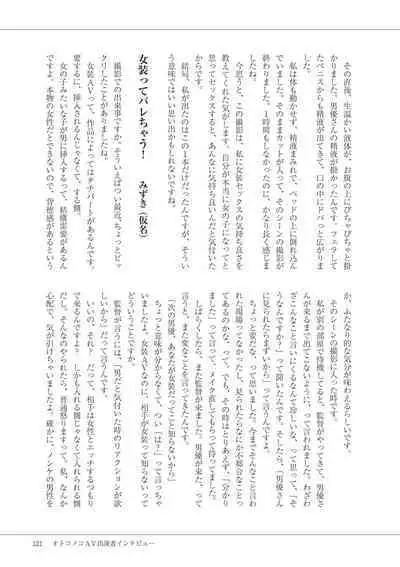 その直後、生温かい液体が、お腹の上にぴちゃぴちゃと掛
かりました。男優さんの精液が掛かったんです。フェラして
たペニスからも精液が出てきて、口の中にドバっと広がりま
した。
私は体も動かせず、精液まみれで、ベッドの上に倒れ込ん
でいました。そのままカットが入って、そのシーンの撮影が
終わりました。1時間もしなかったのに、かなり長く感じま
したね。
今思うと、この撮影は、私に女装セックスの気持ち良さを
教えてくれた気がします。自分が本当に女の子になってると
思ってセックスすると、あんなに気持ち良いんだと気付いた
からです。
結局、私が出たのはこの1本だけだったんですが、そうい
う意味ではいい思い出かもしれないですね。
女装ってバレちゃう！　みずき(仮名)
撮影での出来事ですか。そういえばつい最近、ちょっとビッ
クリしたことがありましたね。
女装AVって、作品によってはタチパートがあるんです。
要するに、挿入されるんじゃなくて、する側。
女の子みたいな子が男に挿入するって、結構需要があるん
ですよ。本物の女性だとできないので、背徳感があるという
か、ふたなり的な気分が味わえるらしいです。
そのシーンの撮影に入った時です。
私が別の部屋で待機してると、監督がやってきて、男優さ
んが来るまで出てこないように、って言われました。わざわ
ざこんなこと言いにくるなんて珍しいな、って思って、「そ
うなんですか？」って聞いたんです。そしたら、「男優さん
に見られたらまずいから」って言うんですよ。
ちょっと変だな、って思いました。今までそんなこと言わ
れた現場ってなかったし、見られたらなにか不都合なことっ
てあるのかな、って。でも、その時はとりあえず、「分かり
ました」って言って、メイク直してもらって待ってました。
しばらくしたら、また監督が来ました。男優が来た、って
言うと、また変なことを言ってきたんです。
「次の男優、あなたが女装だってこと知らないから」
ちょっと意味が分からなくて、つい「は？」って言っちゃ
いましたよ。女装AVなのに、相手が女装って知らないって
どういうことですか。
監督が言うには、「男だと気付いた時のリアクションが欲
しいから」だって言うんです。
いいの、それ？　だって、相手は女性とエッチするつもり
で来るんですよ？　しかも入れる側じゃなくて入れられる側
だし。そんなのやられたら、普通怒りますって。私、なんか
心配で、気が引けちゃいましたよ。確かに、ノンケの男性を
121　オトコノコAV出演者インタビュー